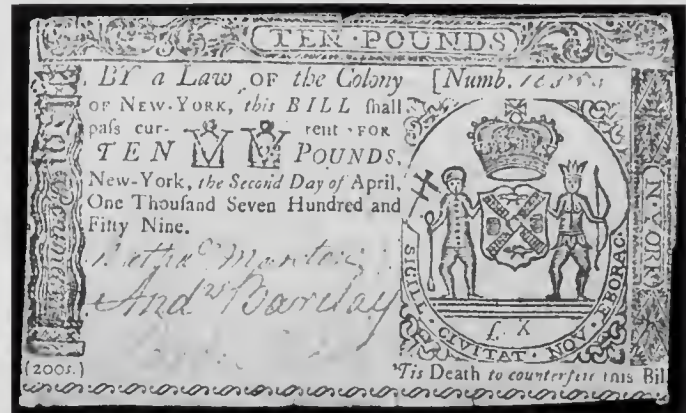 TEN · POUNDS
BY a Law OF the Colony
[Numb.
OF NEW-YORK, this BILL ſhall
paſs cur- rent · FOR
TEN POUNDS.
New-York, the Second Day of April,
One Thouſand Seven Hundred and
Fifty Nine.
And.w Barclay
SIGILL · CIVITAT · NOV · EBORAC
£. X
N. YORK
(200s.)
'Tis Death to counterfeit this Bil